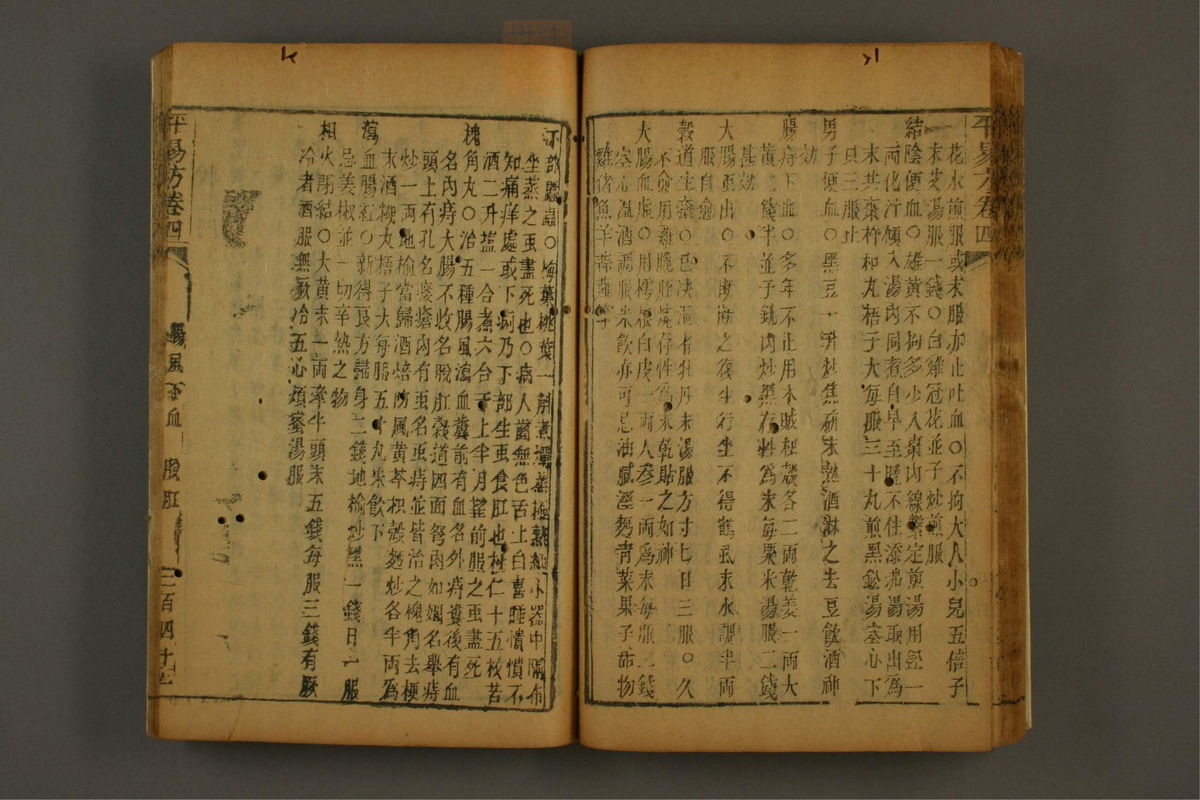 平易方卷四
花水煎服或末服亦止吐血○不拘大人小兒五倍子
末艾湯服一錢○白雞冠花並子炒煎服
結陰便血○雄黃不拘多少入棗內線繫定煎湯用鉛一
兩化汁傾入湯內同煮自早至晚不住添沸湯取出為
末共棗杵和丸梧子大每服三十丸煎黑鉛湯空心下
只三服止
男子便血○黑豆一升炒焦研末熱酒淋之去豆飲酒神
効
腸痔下血○多年不止用木賊枳殼各二兩乾姜一兩大
黃二錢半並于銚內炒黑存性為末每粟米湯服二錢
甚効
大腸重出○不斷斷之復生行坐不得鶴虱末水調半兩
服自愈
穀道生瘡○已決潰者牡丹末湯服方寸匕日三服○久
不愈用雞膍胵燒存性為末乾貼之如神
大腸血虛○用樗根白皮一兩人參一兩為末每服二錢
空心溫酒調服米飲亦可忌油膩溼麪青菜果子甜物
雞猪魚羊蒜薤等
下部䘌蟲○梅葉桃葉一斛煮濃蒸極熟納小器中隔布
坐蒸之虫盡死也○病人齒無色舌上白喜睡憒憒不
知痛痒處或下痢乃下部生虫食肛也桃仁十五枚苦
酒二升塩一合煮六合
槐角丸○治五種腸風瀉血糞前有血名外痔糞後有血
名內痔大腸不收名脫肛穀道四面弩肉如嬭名舉痔
頭上有孔名瘻瘡內有虫名虫痔並皆治之槐角去梗
炒一兩地榆當歸酒焙防風黃芩枳殼麩炒各半兩為
末酒糊丸梧子大每服五十丸米飲下
瀉血腸紅○新得良方
忌姜椒並一切辛熱之物
相火閉結○大黃末一兩牽牛頭末五錢每服三錢有厥
冷者酒服無厥冷五心煩蜜湯服
平易方卷四
腸風下血 脫肛
二百四十